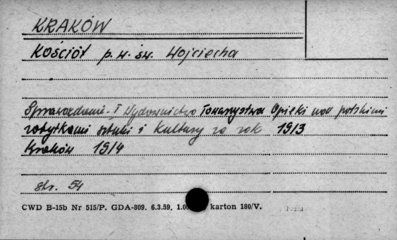 KRAKÓW
KOŚCIÓŁ p.w. św. Wojciecha
Sprawozdanie i Wydawnictwo Towarzystwa Opieki nad polskimi
zabytkami sztuki i kultury za rok 1913
Kraków 1914
str. 54
CWD B-15b Nr 515/P. GDA-809. 6.3.59. 1.0 karton 180/V.